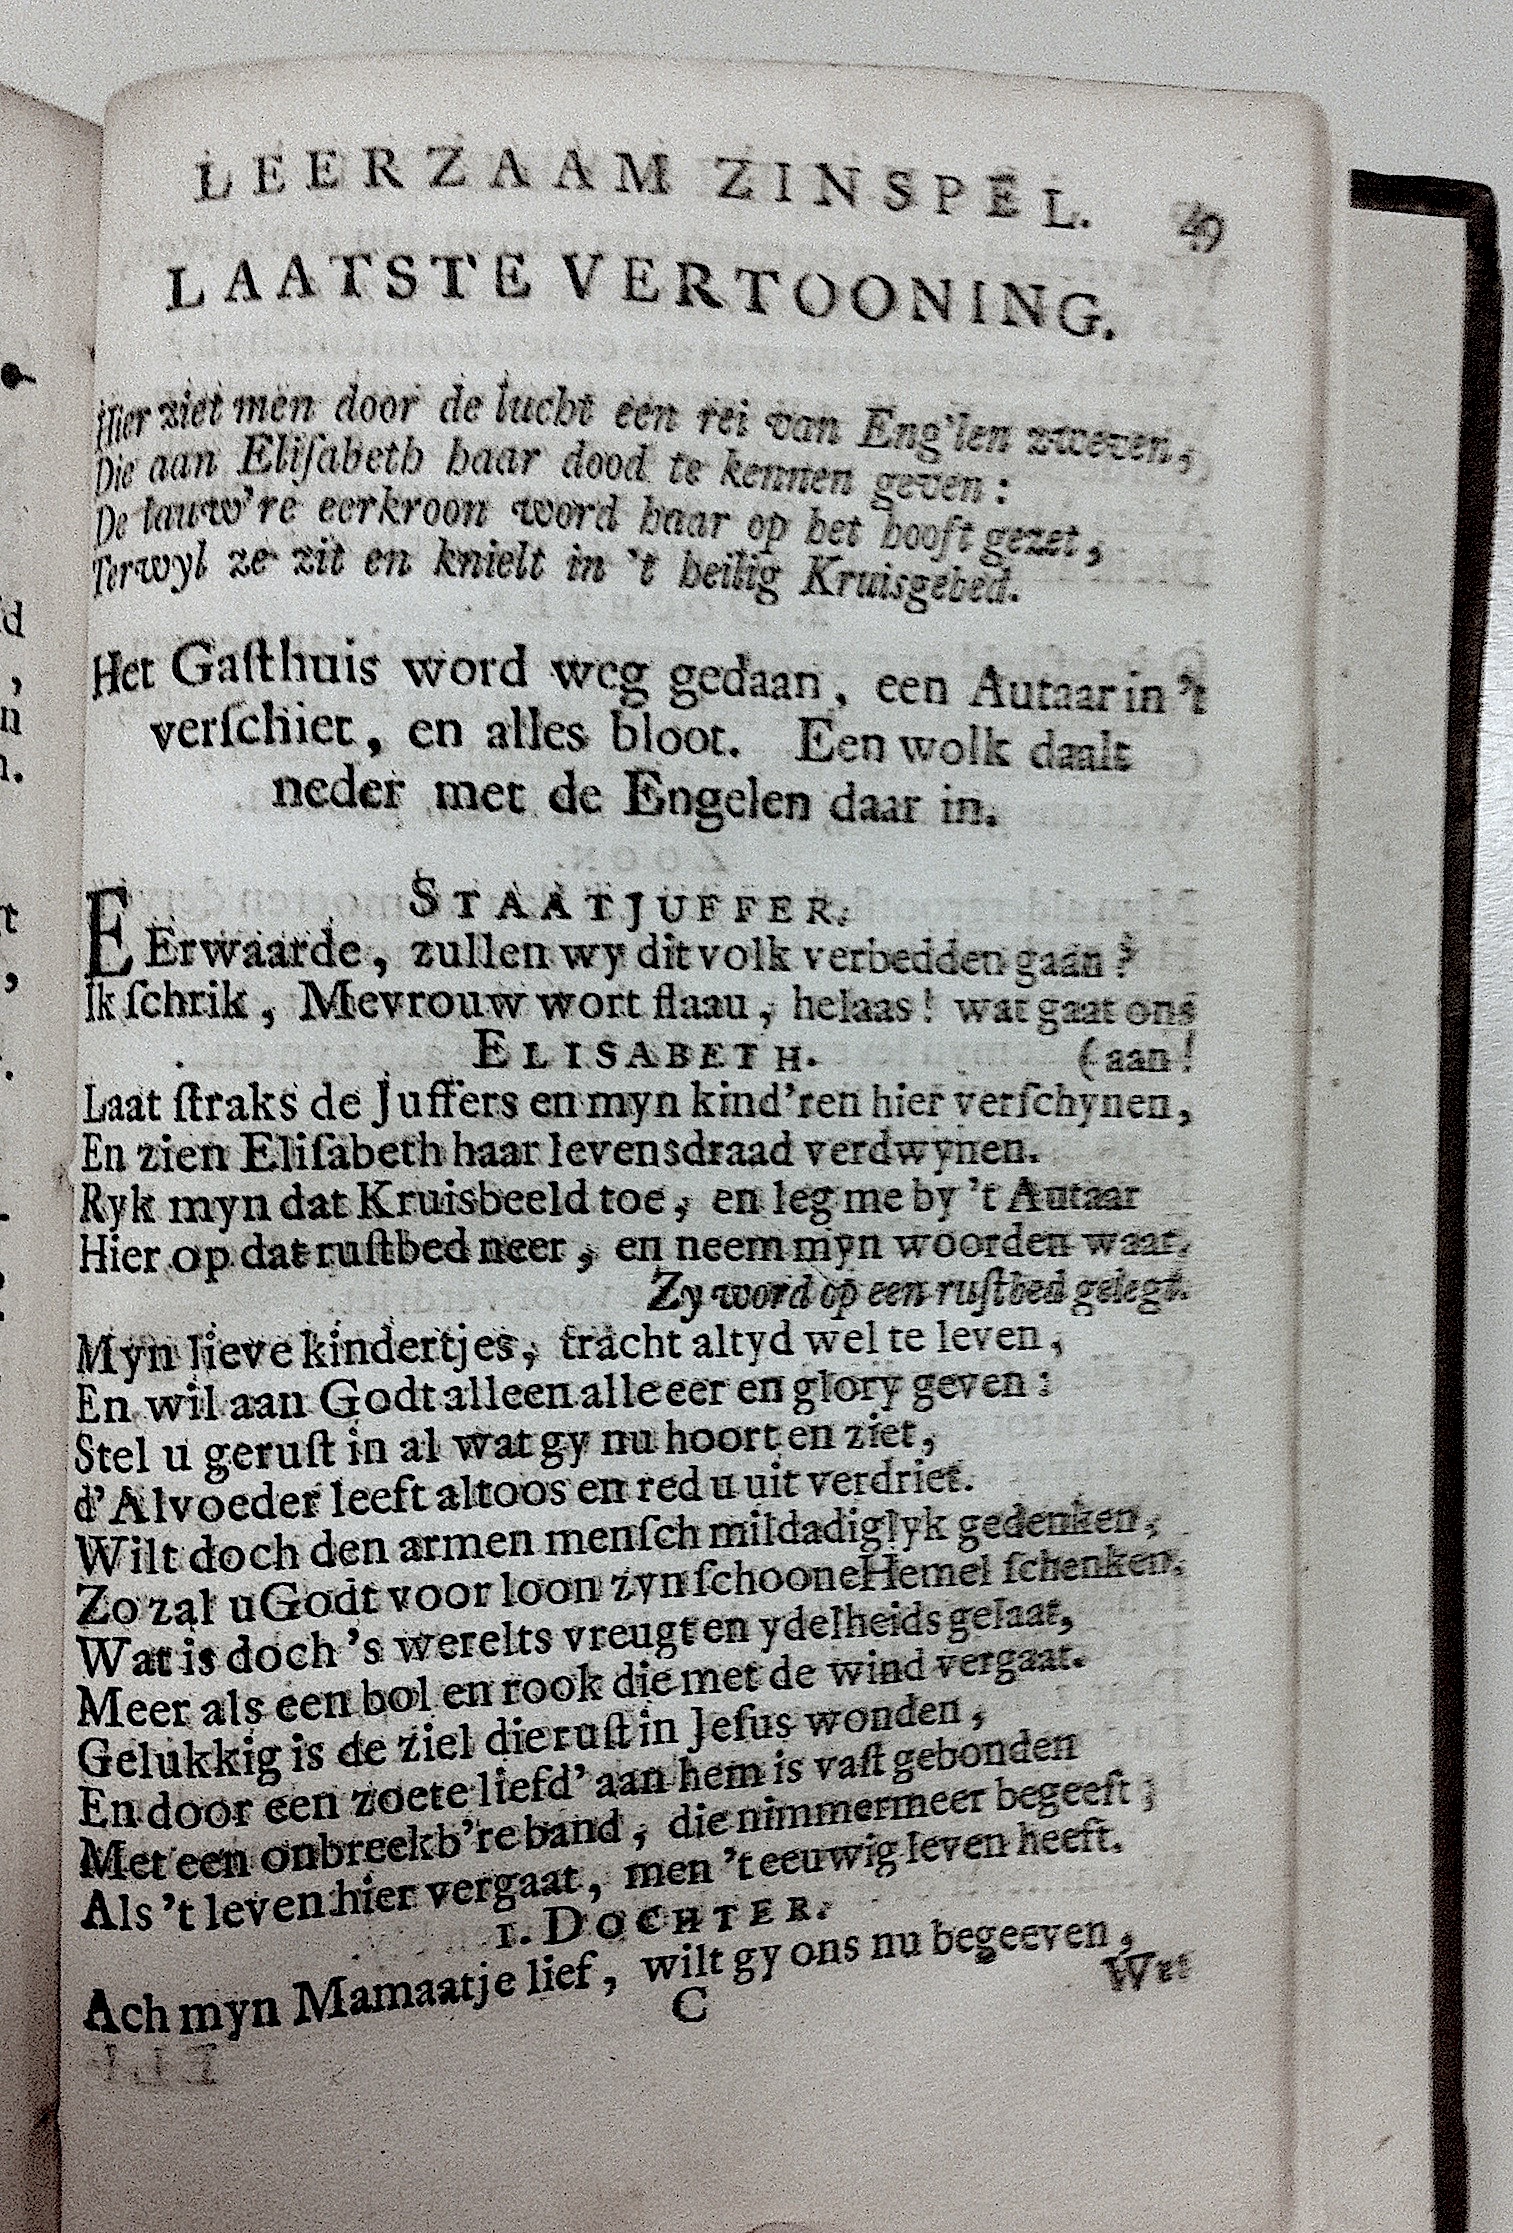 LEERZAAM ZINSPEL. 49
LAATSTE VERTOONING.
Hier ziet men door de lucht een rei van Eng'len zweven,
Die aan Eliſabeth haar dood te kennen geven:
De lauw're eerkroon word haar op het hooft gezet,
Terwyl ze zit en knielt in 't heilig Kruisgebed.
Het Gaſthuis word weg gedaan, een Autaar in 't
verſchiet, en alles bloot. Een wolk daalt
neder met de Engelen daar in.
STAATJUFFER.
EErwaarde, zullen wy dit volk verbedden gaan?
Ik ſchrik, Mevrouw wort flaau, helaas! wat gaat ons
ELISABETH. (aan!
Laat ſtraks de Juffers en myn kind'ren hier verſchynen,
En zien Eliſabeth haar levensdraad verdwynen.
Ryk myn dat Kruisbeeld toe, en leg me by 't Autaar
Hier op dat ruſtbed neer, en neem myn woorden waar.
Zy word op een ruſtbed gelegt.
Myn lieve kindertjes, tracht altyd wel te leven,
En wil aan Godt alleen alle eer en glory geven:
Stel u geruſt in al wat gy nu hoort en ziet,
d'Alvoeder leeft altoos en red u uit verdriet.
Wilt doch den armen menſch mildadiglyk gedenken,
Zo zal u Godt voor loon zyn ſchoone Hemel ſchenken.
Wat is doch 's werelts vreugt en ydelheids gelaat,
Meer als een bol en rook die met de wind vergaat.
Gelukkig is de ziel die ruſt in Jeſus wonden,
En door een zoete liefd' aan hem is vaſt gebonden
Met een onbreekb're band, die nimmermeer begeeft;
Als 't leven hier vergaat, men 't eeuwig leven heeft.
1. DOCHTER.
Ach myn Mamaatje lief, wilt gy ons nu begeeven,
C